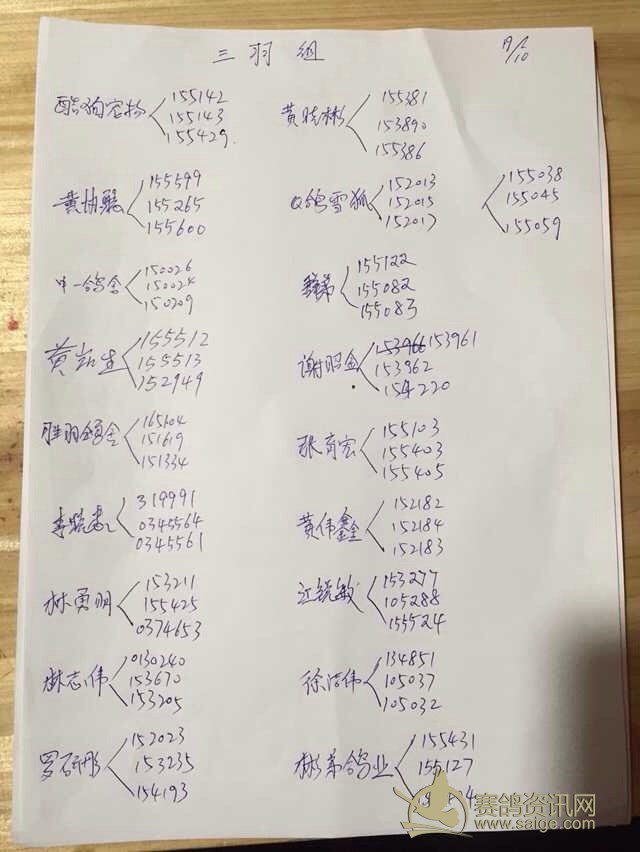 三羽组
酷狗宠物
155142
155143
155429
黄晓彬
155381
153890
155386
155599
155265
155600
Q鸽雪狐
152013
152015
152017
155038
155045
155059
中一鸽舍
150026
150024
150209
155122
155082
155083
155512
155513
152949
谢昭金
153961
153962
154220
胜羽鸽舍
165104
151619
151334
张育宏
155103
155403
155405
319991
0345564
0345561
黄伟鑫
152182
152184
152183
林勇明
153211
155425
0374653
江毓敏
153277
105288
155524
林志伟
0130240
153670
153205
徐洁伟
134851
105037
105032
罗研彤
152023
153235
154193
彬弟鸽业
155431
155127
赛鸽资讯网
www.saige.com